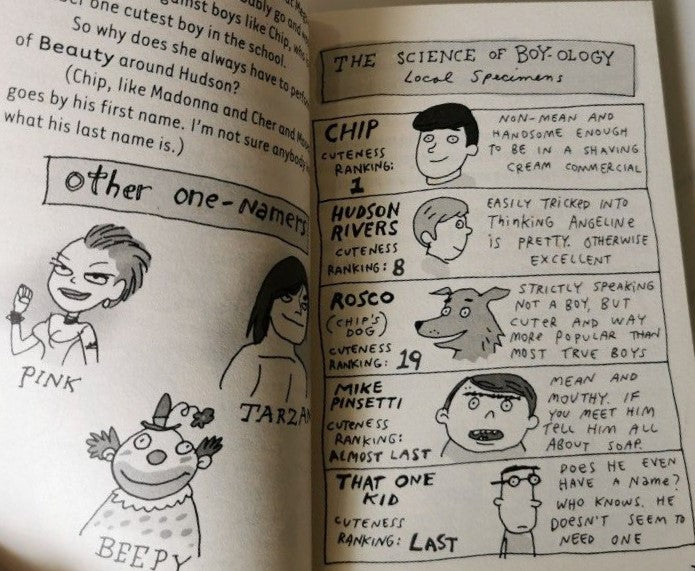 one cutest boy in the school.
So why does she always have to
of Beauty around Hudson?
(Chip, like Madonna and Cher and
goes by his first name. I'm not sure anybody
what his last name is.)
other one-namers
PINK
TARZAN
BEEPY
THE SCIENCE OF BOY-OLOGY
Local Specimens
CHIP
CUTENESS
RANKING:
1
NON-MEAN AND
HANDSOME ENOUGH
TO BE IN A SHAVING
CREAM COMMERCIAL
HUDSON
RIVERS
CUTENESS
RANKING: 8
EASILY TRICKED INTO
THINKING ANGELINE
IS PRETTY. OTHERWISE
EXCELLENT
ROSCO
(CHIP'S
DOG)
CUTENESS
RANKING: 19
STRICTLY SPEAKING
NOT A BOY, BUT
CUTER AND WAY
MORE POPULAR THAN
MOST TRUE BOYS
MIKE
PINSETTI
CUTENESS
RANKING:
ALMOST LAST
MEAN AND
MOUTHY. IF
YOU MEET HIM
TELL HIM ALL
ABOUT SOAP.
THAT ONE
KID
CUTENESS
RANKING: LAST
DOES HE EVEN
HAVE A NAME?
WHO KNOWS. HE
DOESN'T SEEM TO
NEED ONE